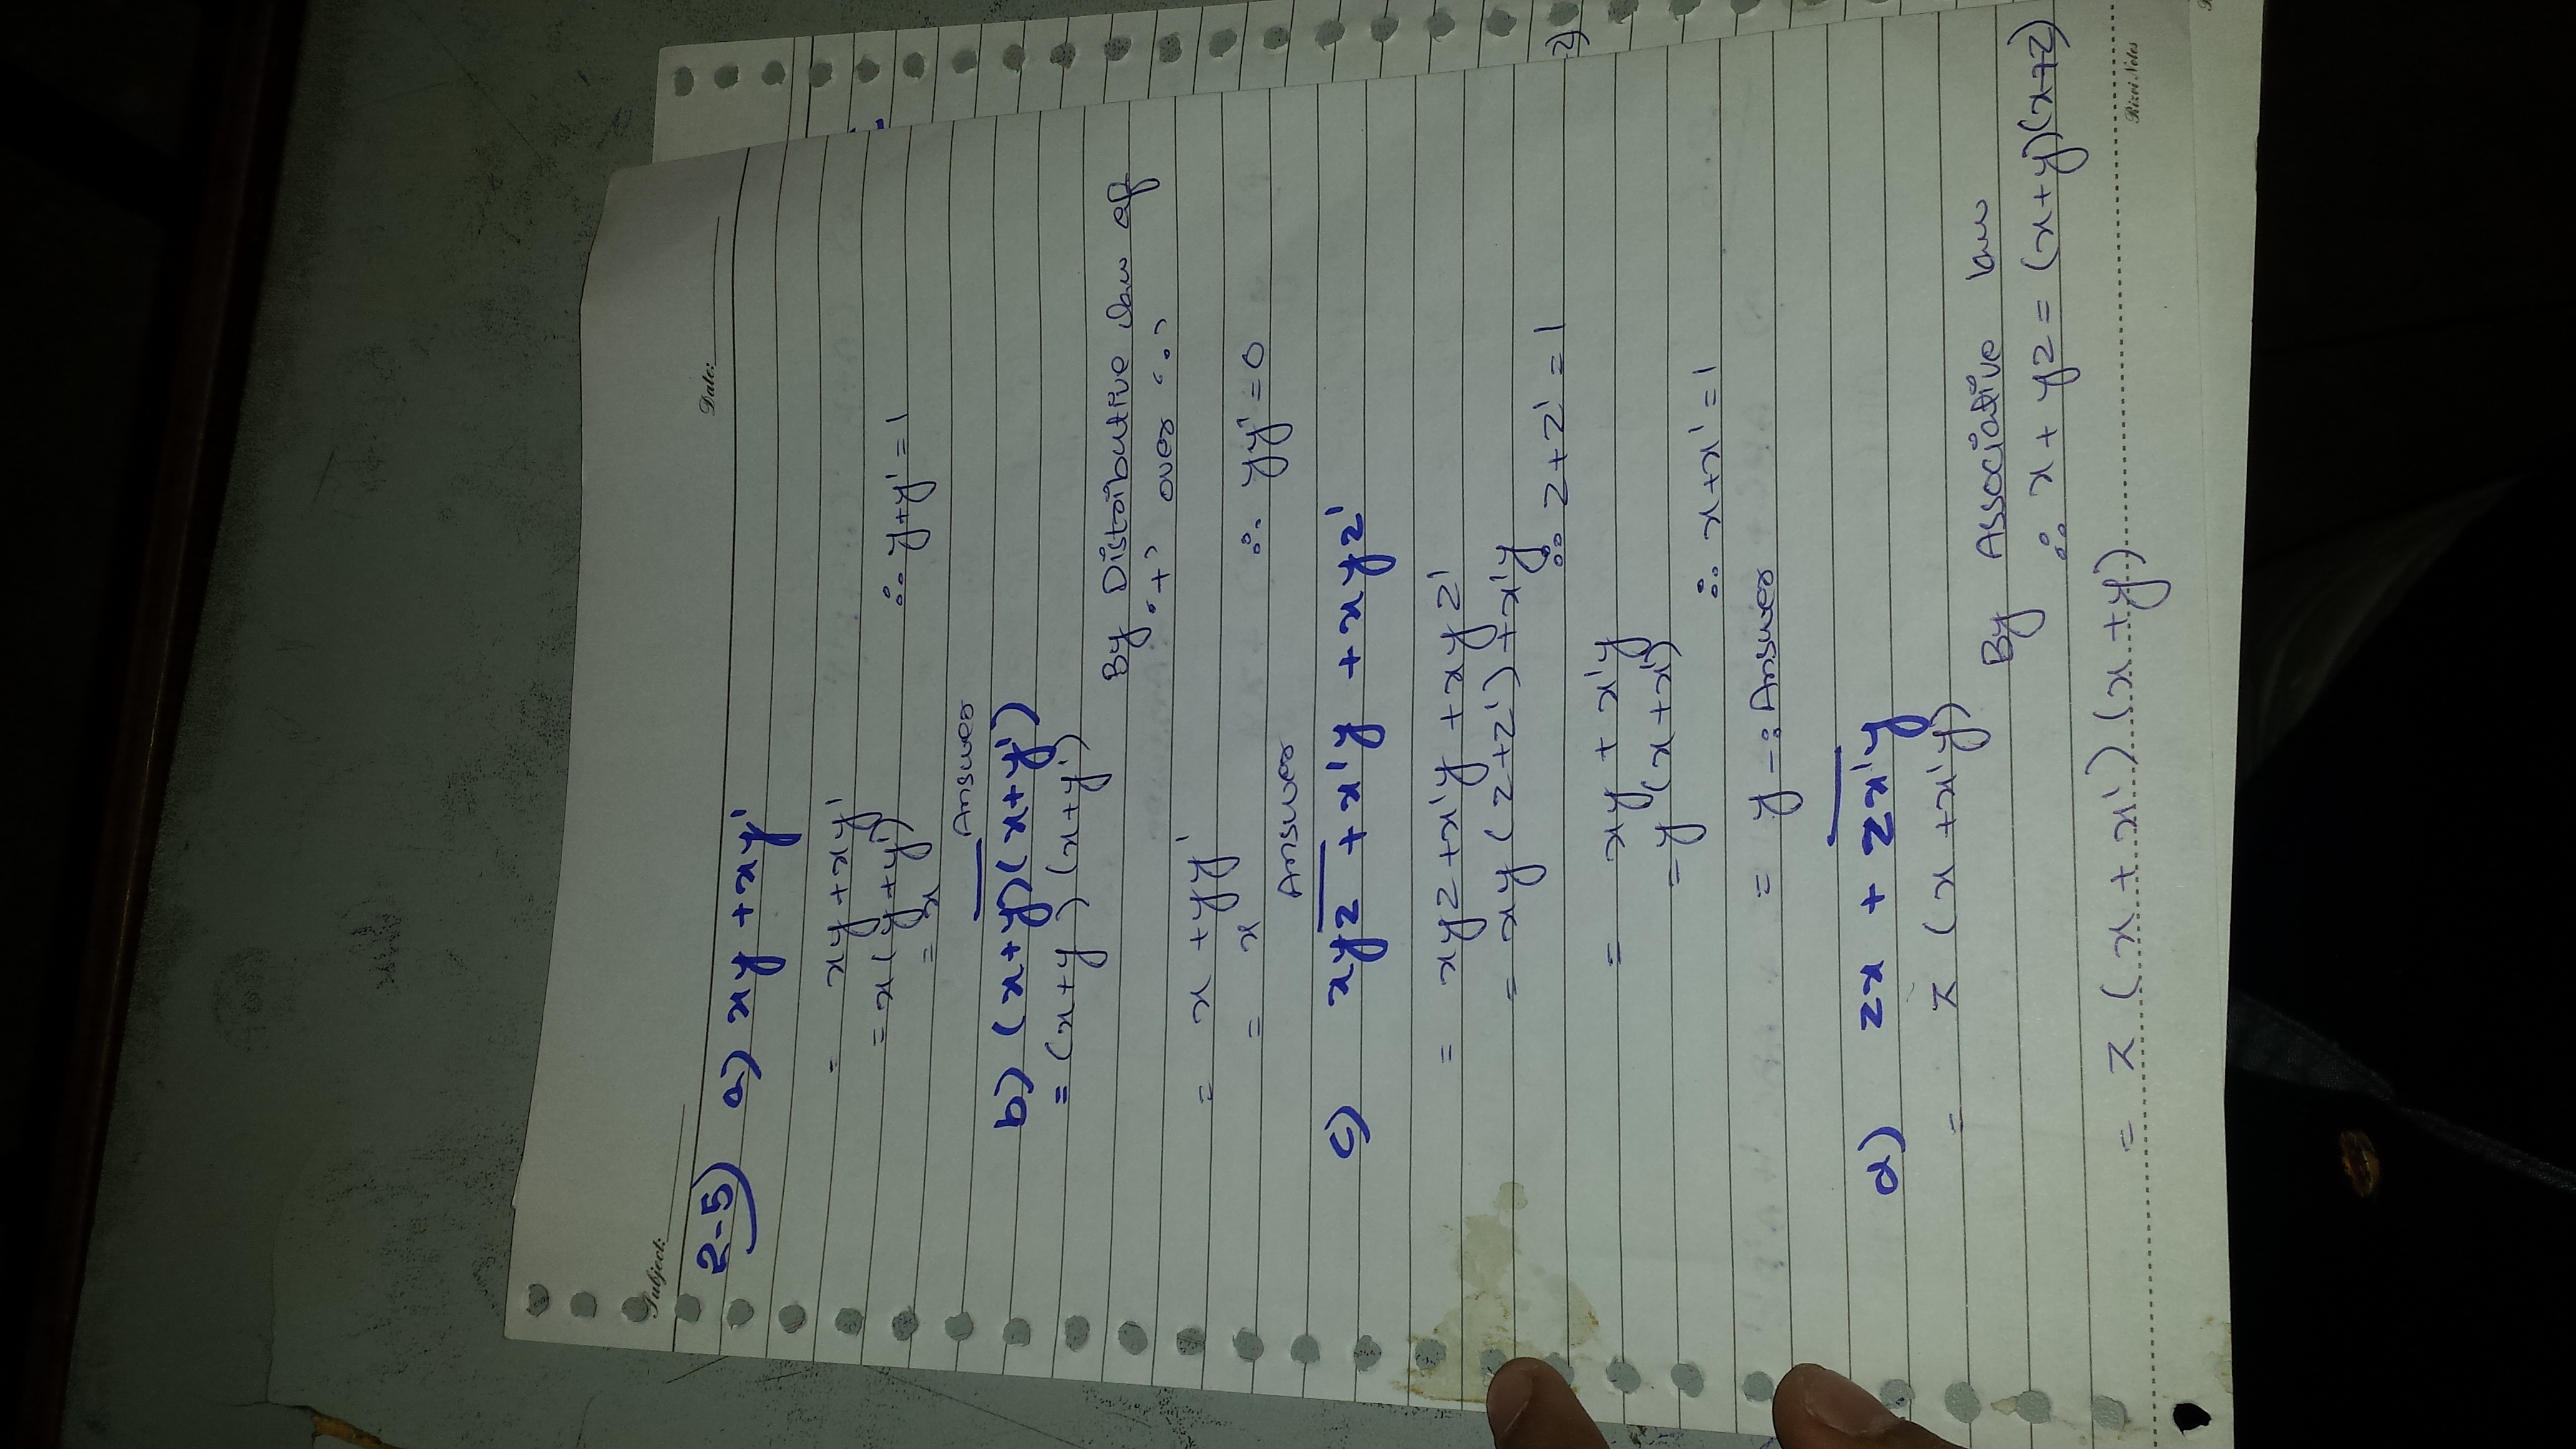 Subject:
Date:
2-5) a) xy + xy'
= xy + xy'
= x(y+y')
∴ y+y' = 1
= x
Answer
b) (x+y)(x+y')
= (x+y)(x+y')
By Distributive law of
'+' over '.'
= x + yy'
∴ yy' = 0
= x
Answer
c) xyz + x'y + xyz'
= xyz + x'y + xyz'
= xy(z+z') + x'y
∴ z+z' = 1
= xy + x'y
= y(x+x')
∴ x+x' = 1
= y -: Answer
d) zx + zx'y
= z(x + x'y)
By Associative law
∴ x + yz = (x+y)(x+z)
= z(x + x')(x + y)
Rizvi Notes